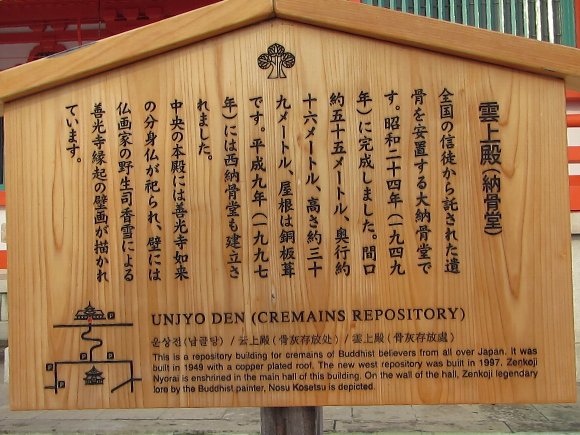 雲上殿（納骨堂）
全国の信徒から託された遺
骨を安置する大納骨堂で
す。昭和二十四年（一九四九
年）に完成しました。間口
約五十五メートル、奥行約
十六メートル、高さ約三十
九メートル、屋根は銅板葺
です。平成九年（一九九七
年）には西納骨堂も建立さ
れました。
中央の本殿には善光寺如来
の分身仏が祀られ、壁には
仏画家の野生司香雪による
善光寺縁起の壁画が描かれ
ています。
UNJYO DEN (CREMAINS REPOSITORY)
운상전(납골당) / 云上殿（骨灰存放处）/ 雲上殿（骨灰存放處）
This is a repository building for cremains of Buddhist believers from all over Japan. It was
built in 1949 with a copper plated roof. The new west repository was built in 1997. Zenkoji
Nyorai is enshrined in the main hall of this building. On the wall of the hall, Zenkoji legendary
lore by the Buddhist painter, Nosu Kosetsu is depicted.
P
P
P
P